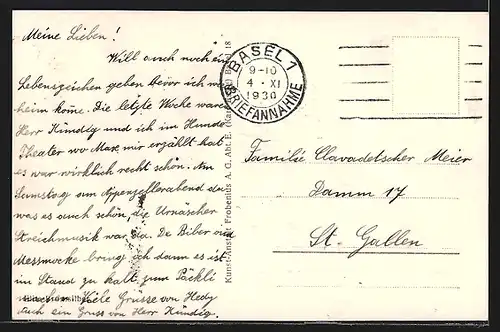 Meine Lieben!
Will euch noch ein
Lebenszeichen geben bevor ich
heim kome. Die letzte Woche waren
Herr Kündig und ich im Hunde
Theater wo Max mir erzählt hat
es war wirklich recht schön. Am
Samstag am Appenzellerabend
was es auch schön, die Urnäscher
Streichmusik war da. De Biber
Messmocke bring ich dann es ist
im Stand zu kalt zum Päckli
machen. Viele Grüsse von Hedy
auch ein Gruss von Herr Kündig.
Kunst-Anstalt Frobenius A. G. Abt. E. 18
BASEL 1
9-10
4 · XI
1930
BRIEFANNAHME
Familie Clavadetscher Meier
Damm 17
St. Gallen